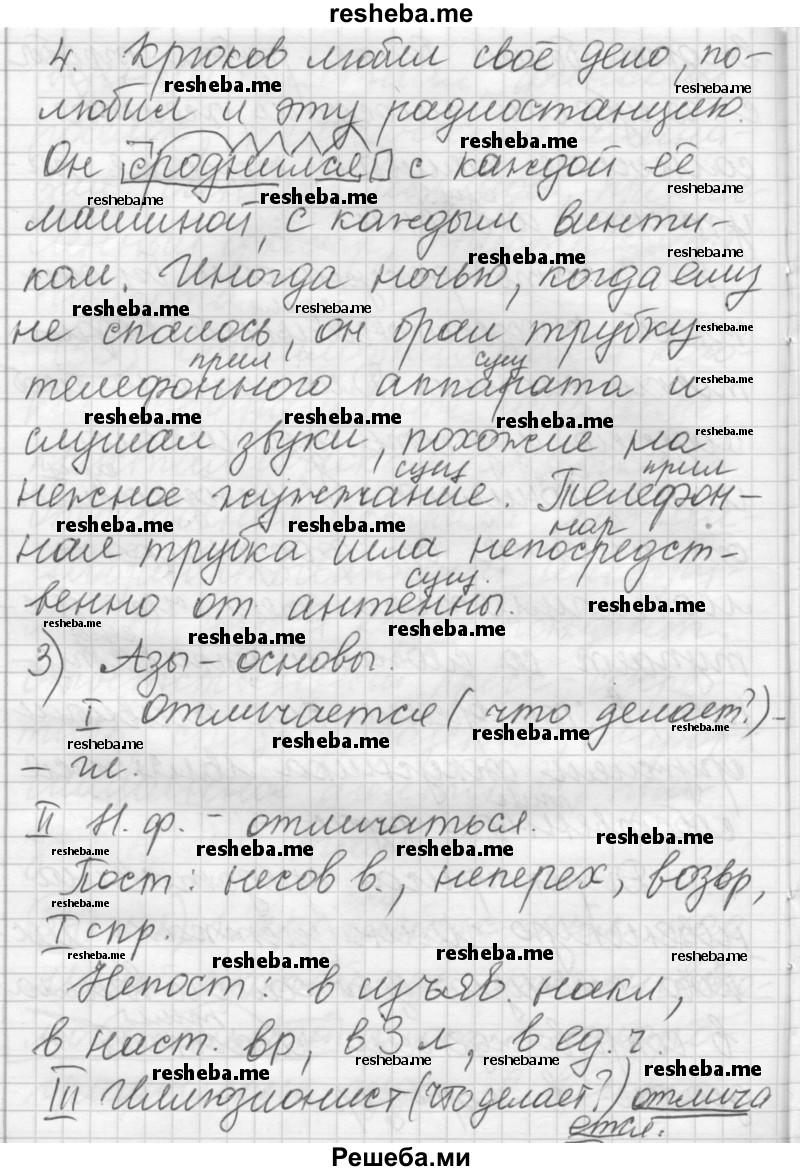 resheba.me
4. Крюков любил своё дело, по-
resheba.me resheba.me
любил и эту радиостанцию.
resheba.me
Он сроднился с каждой её
resheba.me resheba.me resheba.me
машиной, с каждым винти-
resheba.me resheba.me
ком. Иногда ночью, когда ему
resheba.me resheba.me
не спалось, он брал трубку resheba.me
прил сущ
телефонного аппарата и resheba.me
resheba.me resheba.me resheba.me
слушал звуки, похожие на resheba.me
сущ прил
нежное жужжание. Телефон-
resheba.me resheba.me
нар
ная трубка шла непосредст-
сущ.
венно от антенны. resheba.me
resheba.me resheba.me resheba.me
3) Азы - основы.
I отличается (что делает?) -
resheba.me resheba.me resheba.me resheba.me
- гл.
II Н. ф. - отличаться.
resheba.me resheba.me resheba.me resheba.me
Пост: несов в., неперех, возвр,
resheba.me
I спр.
resheba.me resheba.me resheba.me resheba.me
Непост: в изъяв. накл,
в наст. вр, в 3 л, в ед. ч.
resheba.me resheba.me resheba.me resheba.me
III Иллюзионист (что делает?) отлича
ется.
Решеба.ми